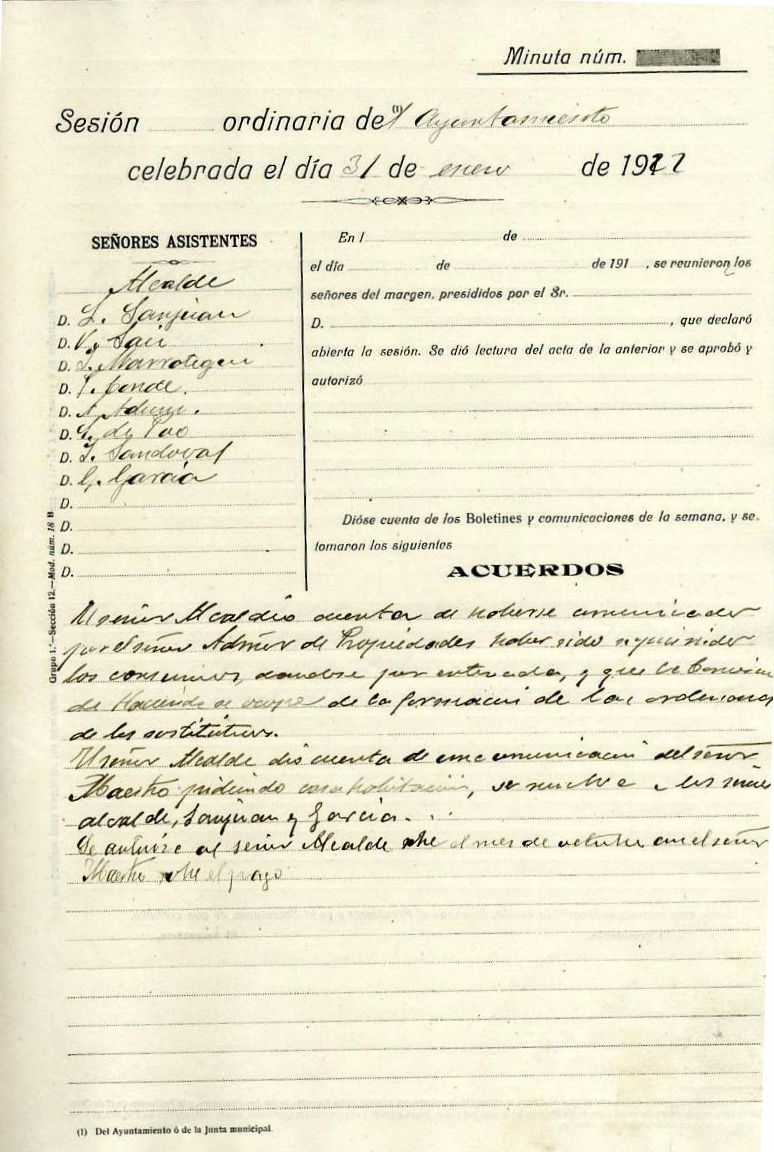 Minuta núm.
Sesión ordinaria del (1) Ayuntamiento
celebrada el día 31 de enero de 1922
SEÑORES ASISTENTES
Alcalde
D. L. Sanjuan
D. V. Saii
D. I. Marrotegui
D. I. Conde.
D. A.
D. S. de Pao
D. I. Sandoval
D. G. García
D.
D.
D.
D.
En l de
el día de de 191 , se reunieron los
señores del margen, presididos por el Sr.
D. , que declaró
abierta la sesión. Se dió lectura del acta de la anterior y se aprobó y
autorizó
Dióse cuenta de los Boletines y comunicaciones de la semana, y se
tomaron los siguientes
ACUERDOS
El señor Alcalde dió cuenta de haberse comunicado
por el señor Admor de Propiedades haber sido
los consumos, dandose por enterado, y que la Comision
de Hacienda se ocupe de la formacion de las ordenanzas
de los sustitutivos.
El señor Alcalde dió cuenta de una comunicacion del señor
Maestro pidiendo casa habitación, se a los
alcalde, Sanjuan y García.
Se autoriza al señor Alcalde el mes de octubre el señor
Maestro sobre el pago
Grupo 1.º—Sección 12.—Mod. núm. 18 B
(1) Del Ayuntamiento ó de la Junta municipal.